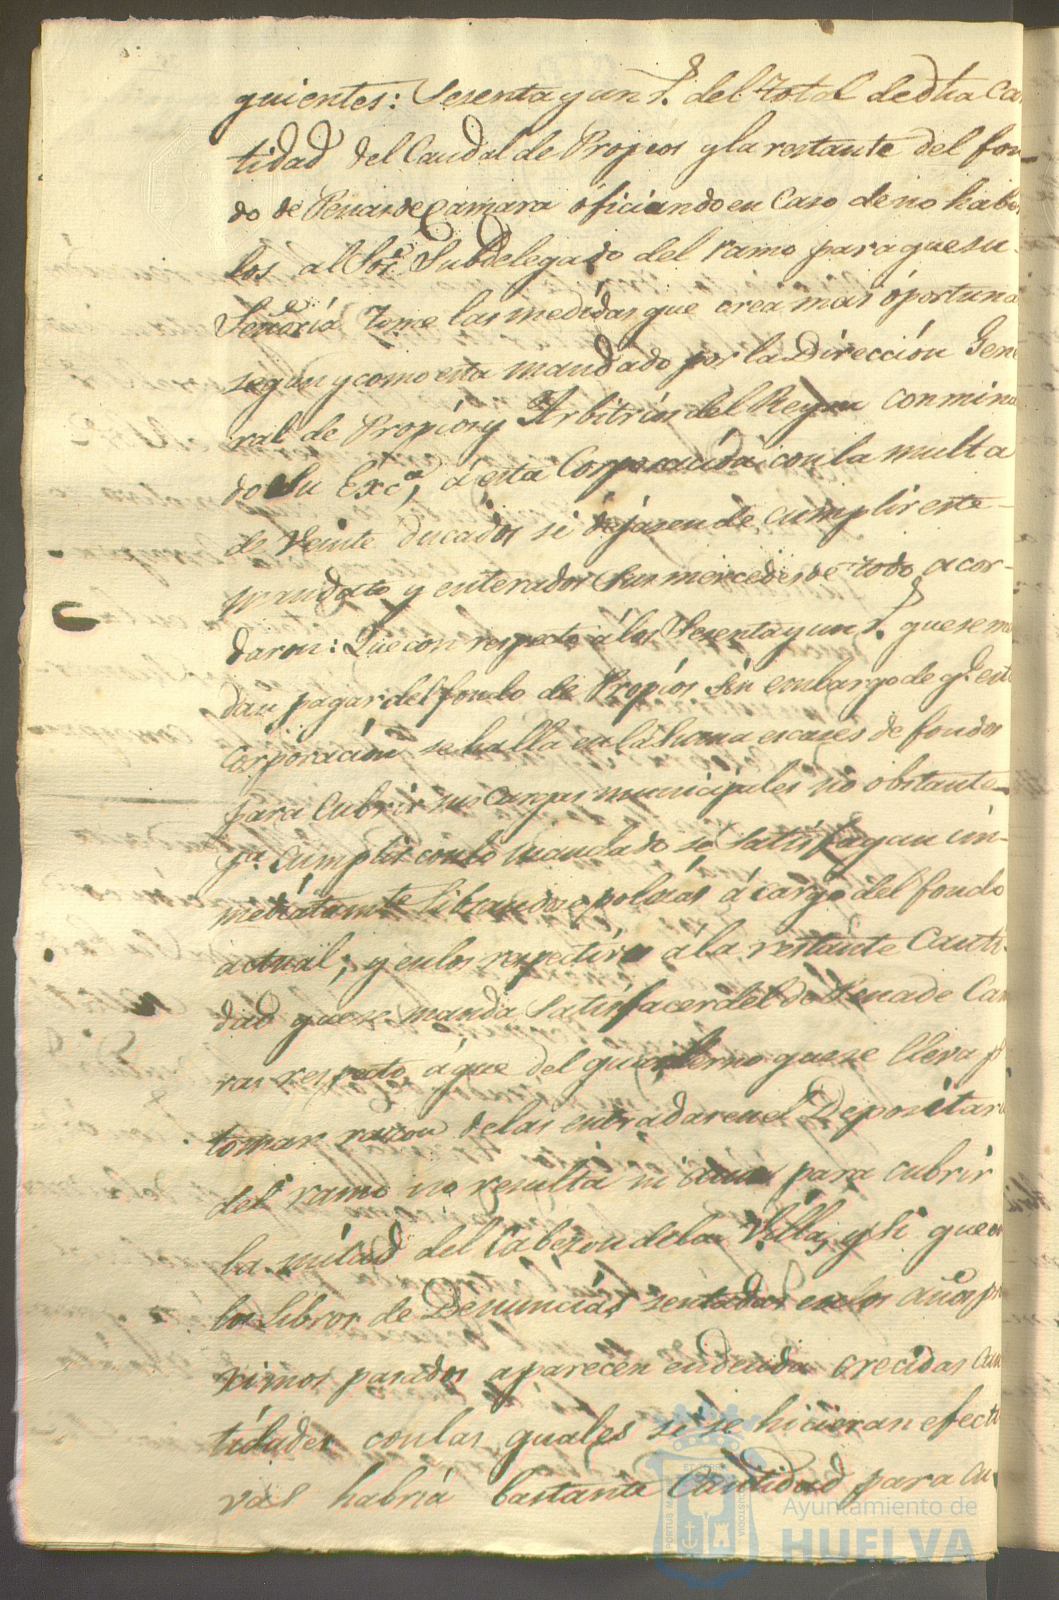 guientes: Sesenta y un r.s del total de dha Can
tidad del Caudal de Propios y la restante del fon
do de Penas de Camara oficiando en caso de no haber
los al Sor. Subdelegado del ramo para que su
Señoría tome las medidas que crea mas oportunas
segun y como esta mandado por la Dirección Gene
ral de Propios y Arbitrios del Reyno conminan
do Su Exc.a, á esta Corporación con la multa
de Veinte ducados si dejasen de cumplir este
mandato y enterados Sus mercedes de todo acor-
daron: Que con respecto á los Sesenta y un r.s que se man
dan pagar del fondo de Propios sin embargo de q.e esta
Corporación se halla en la Suma escases de fondos
para Cubrir sus cargas municipales no obstante
p.a cumplir con lo mandado se satisfagan in-
mediatamte librandose polisas á cargo del fondo
actual; y en los respectivo á la restante Canti
dad que se manda satisfacer del de Pena de Cam
ras respecto á que del quaderno que se lleva p.a
tomar razon de las entradas en el Depositario
del ramo no resulta ni aun para cubrir
la mitad del Cabeson de la Villa, y si que en
los libros de Denuncias sentadas en los años pro
ximos pasados aparecen en deuda crecidas can
tidades con las quales si se hicieran efecti
vas habria bastante Cantidad para cu
Ayuntamiento de
HUELVA